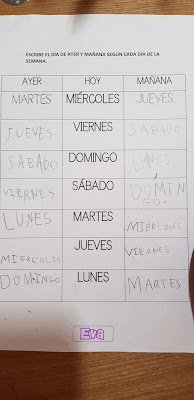 ESCRIBE EL DÍA DE AYER Y MAÑANA SEGÚN CADA DÍA DE LA
SEMANA.
AYER HOY MAÑANA
MARTES MIÉRCOLES JUEVES
JUEVES VIERNES SABADO
SABADO DOMINGO LUNES
VIERNES SÁBADO DOMIN
GO
LUNES MARTES MIERCOLES
MIERCOLES JUEVES VIERNES
DOMINGO LUNES MARTES
Eva